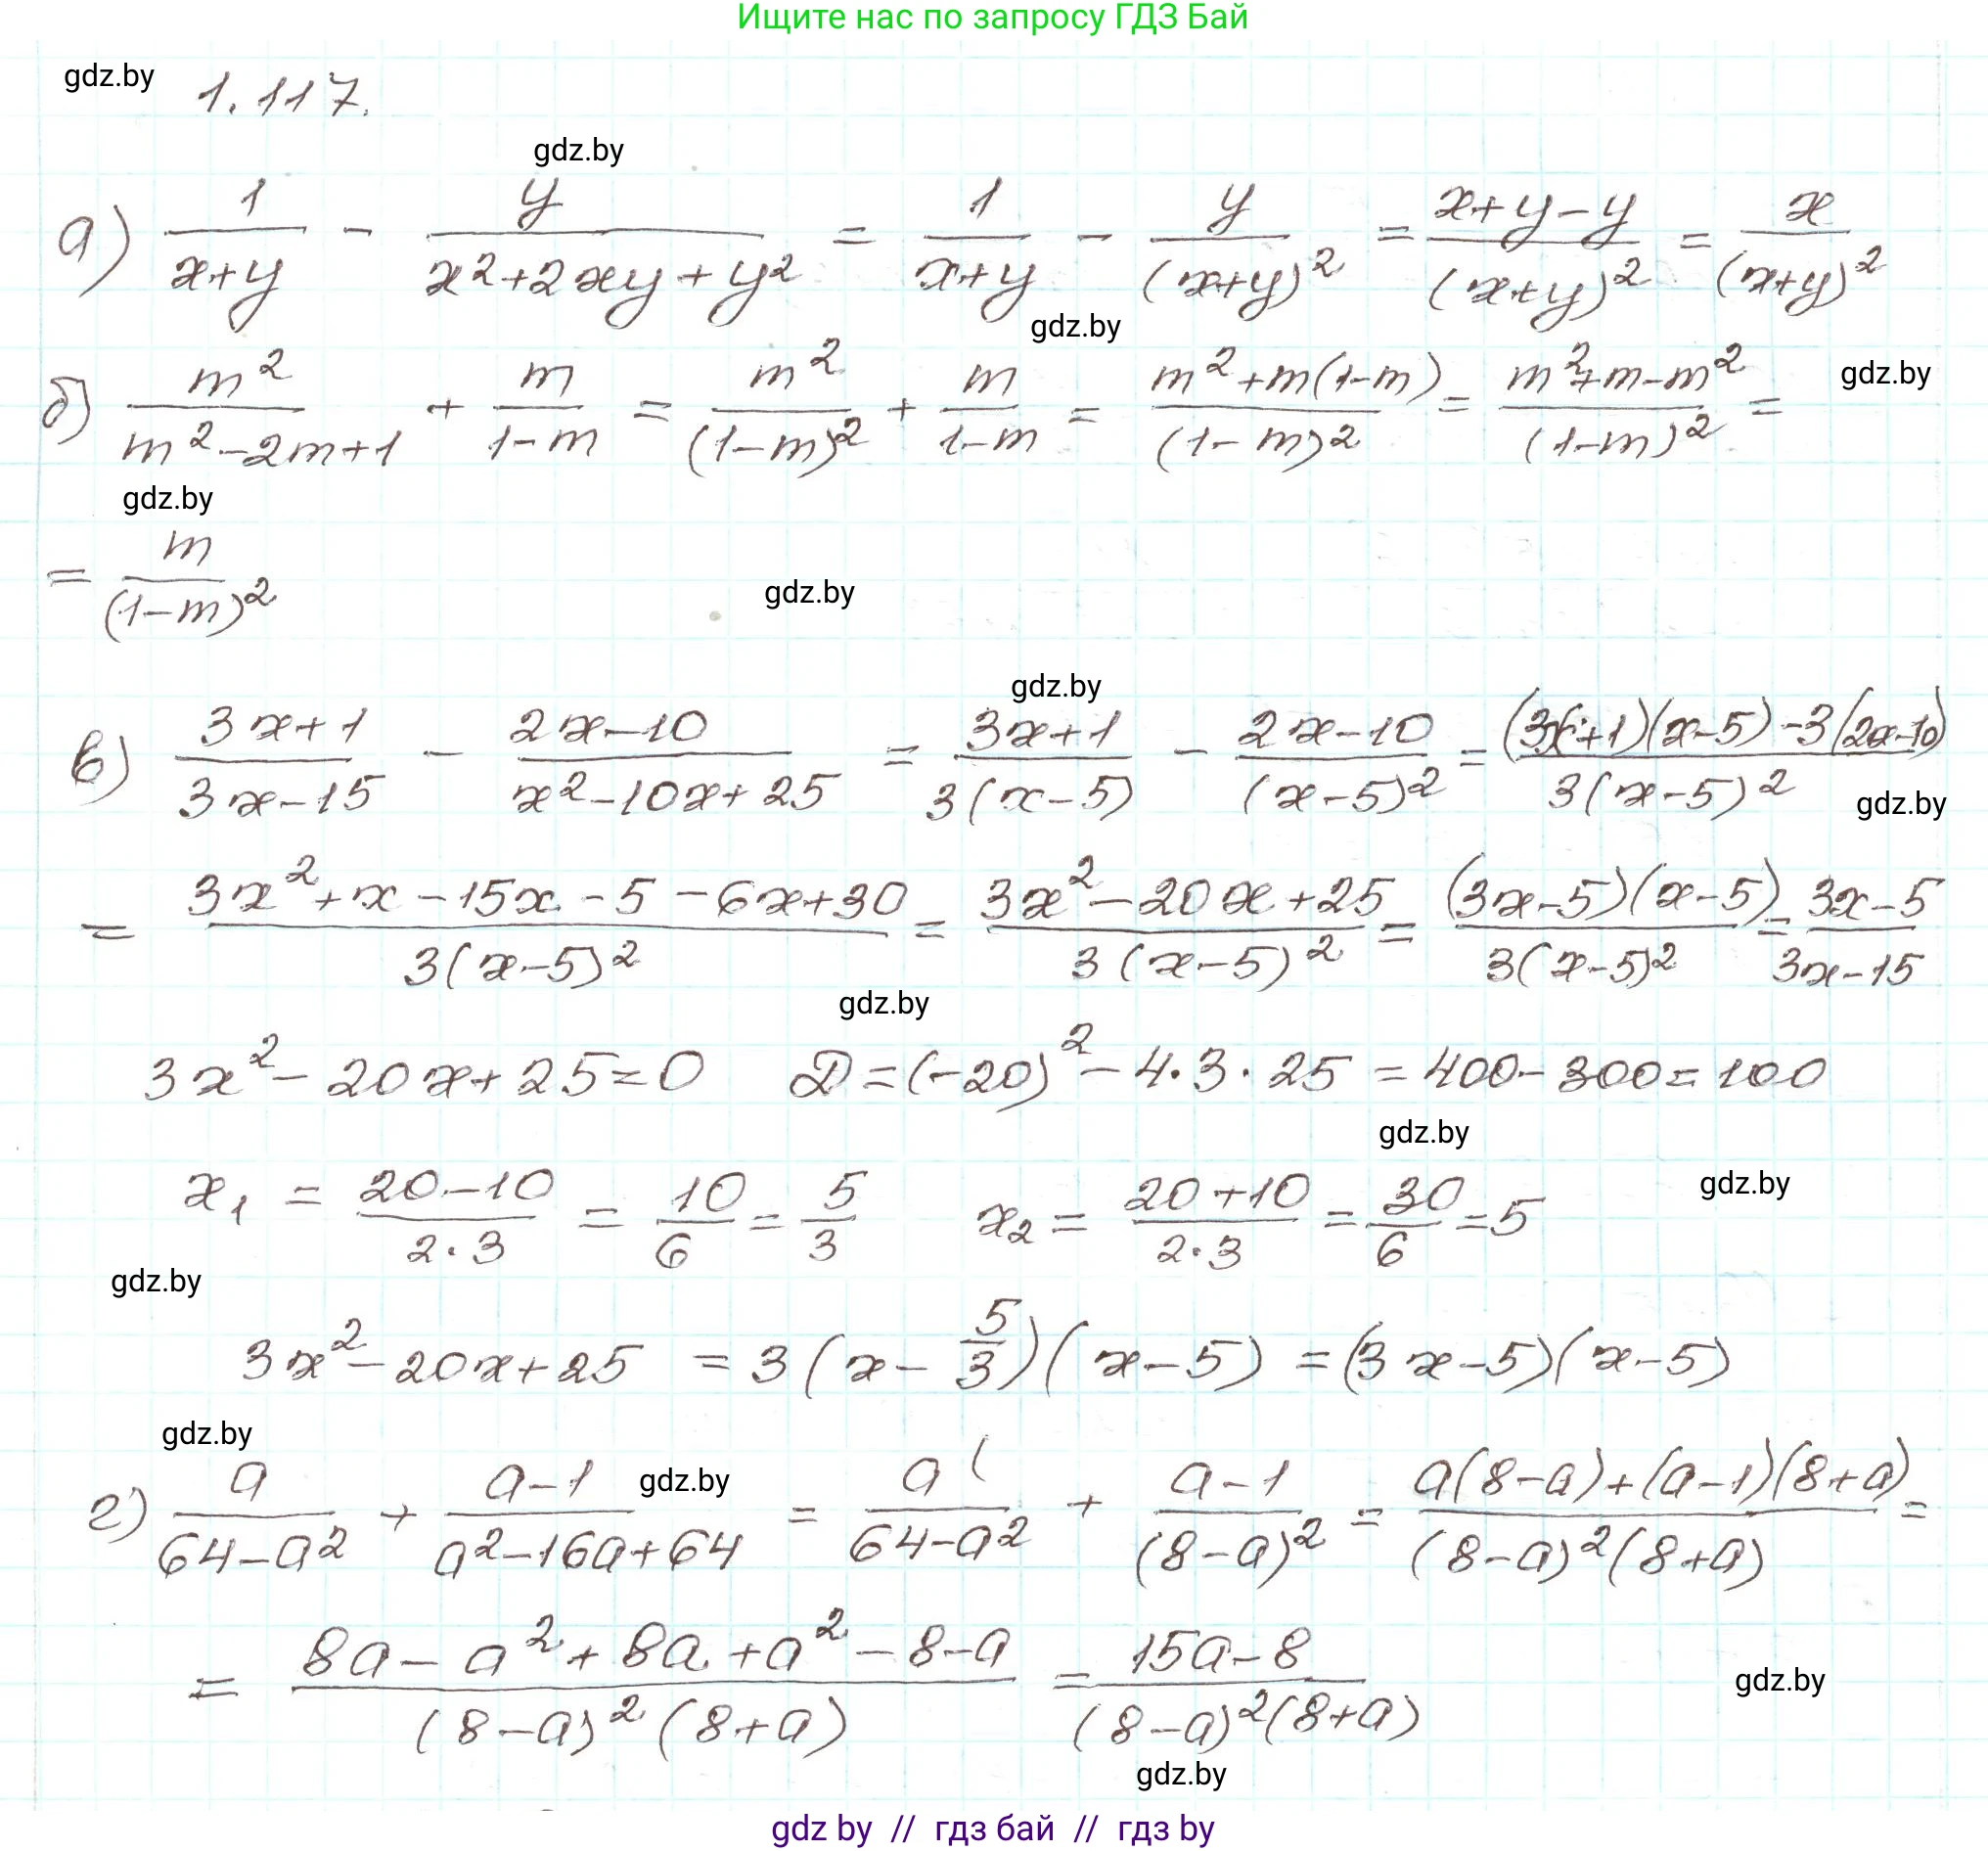 Ищите нас по запросу ГДЗ Бай
gdz.by
1.117.
gdz.by
а) 1/(x+y) - y/(x²+2xy+y²) = 1/(x+y) - y/(x+y)² = (x+y-y)/(x+y)² = x/(x+y)²
gdz.by
б) m²/(m²-2m+1) + m/(1-m) = m²/(1-m)² + m/(1-m) = (m²+m(1-m))/(1-m)² = (m²+m-m²)/(1-m)² =
gdz.by
gdz.by
= m/(1-m)²
gdz.by
gdz.by
в) (3x+1)/(3x-15) - (2x-10)/(x²-10x+25) = (3x+1)/(3(x-5)) - (2x-10)/(x-5)² = ((3x+1)(x-5)-3(2x-10))/(3(x-5)²)
gdz.by
= (3x²+x-15x-5-6x+30)/(3(x-5)²) = (3x²-20x+25)/(3(x-5)²) = ((3x-5)(x-5))/(3(x-5)²) = (3x-5)/(3x-15)
gdz.by
3x²-20x+25=0 D=(-20)²-4·3·25=400-300=100
gdz.by
gdz.by
x₁ = (20-10)/(2·3) = 10/6 = 5/3 x₂ = (20+10)/(2·3) = 30/6 = 5
gdz.by
3x²-20x+25 = 3(x-5/3)(x-5) = (3x-5)(x-5)
gdz.by
gdz.by
г) a/(64-a²) + (a-1)/(a²-16a+64) = a(/(64-a²) + (a-1)/(8-a)² = (a(8-a)+(a-1)(8+a))/((8-a)²(8+a)) =
= (8a-a²+8a+a²-8-a)/((8-a)²(8+a)) = (15a-8)/((8-a)²(8+a))
gdz.by
gdz.by
gdz by // гдз бай // гдз by